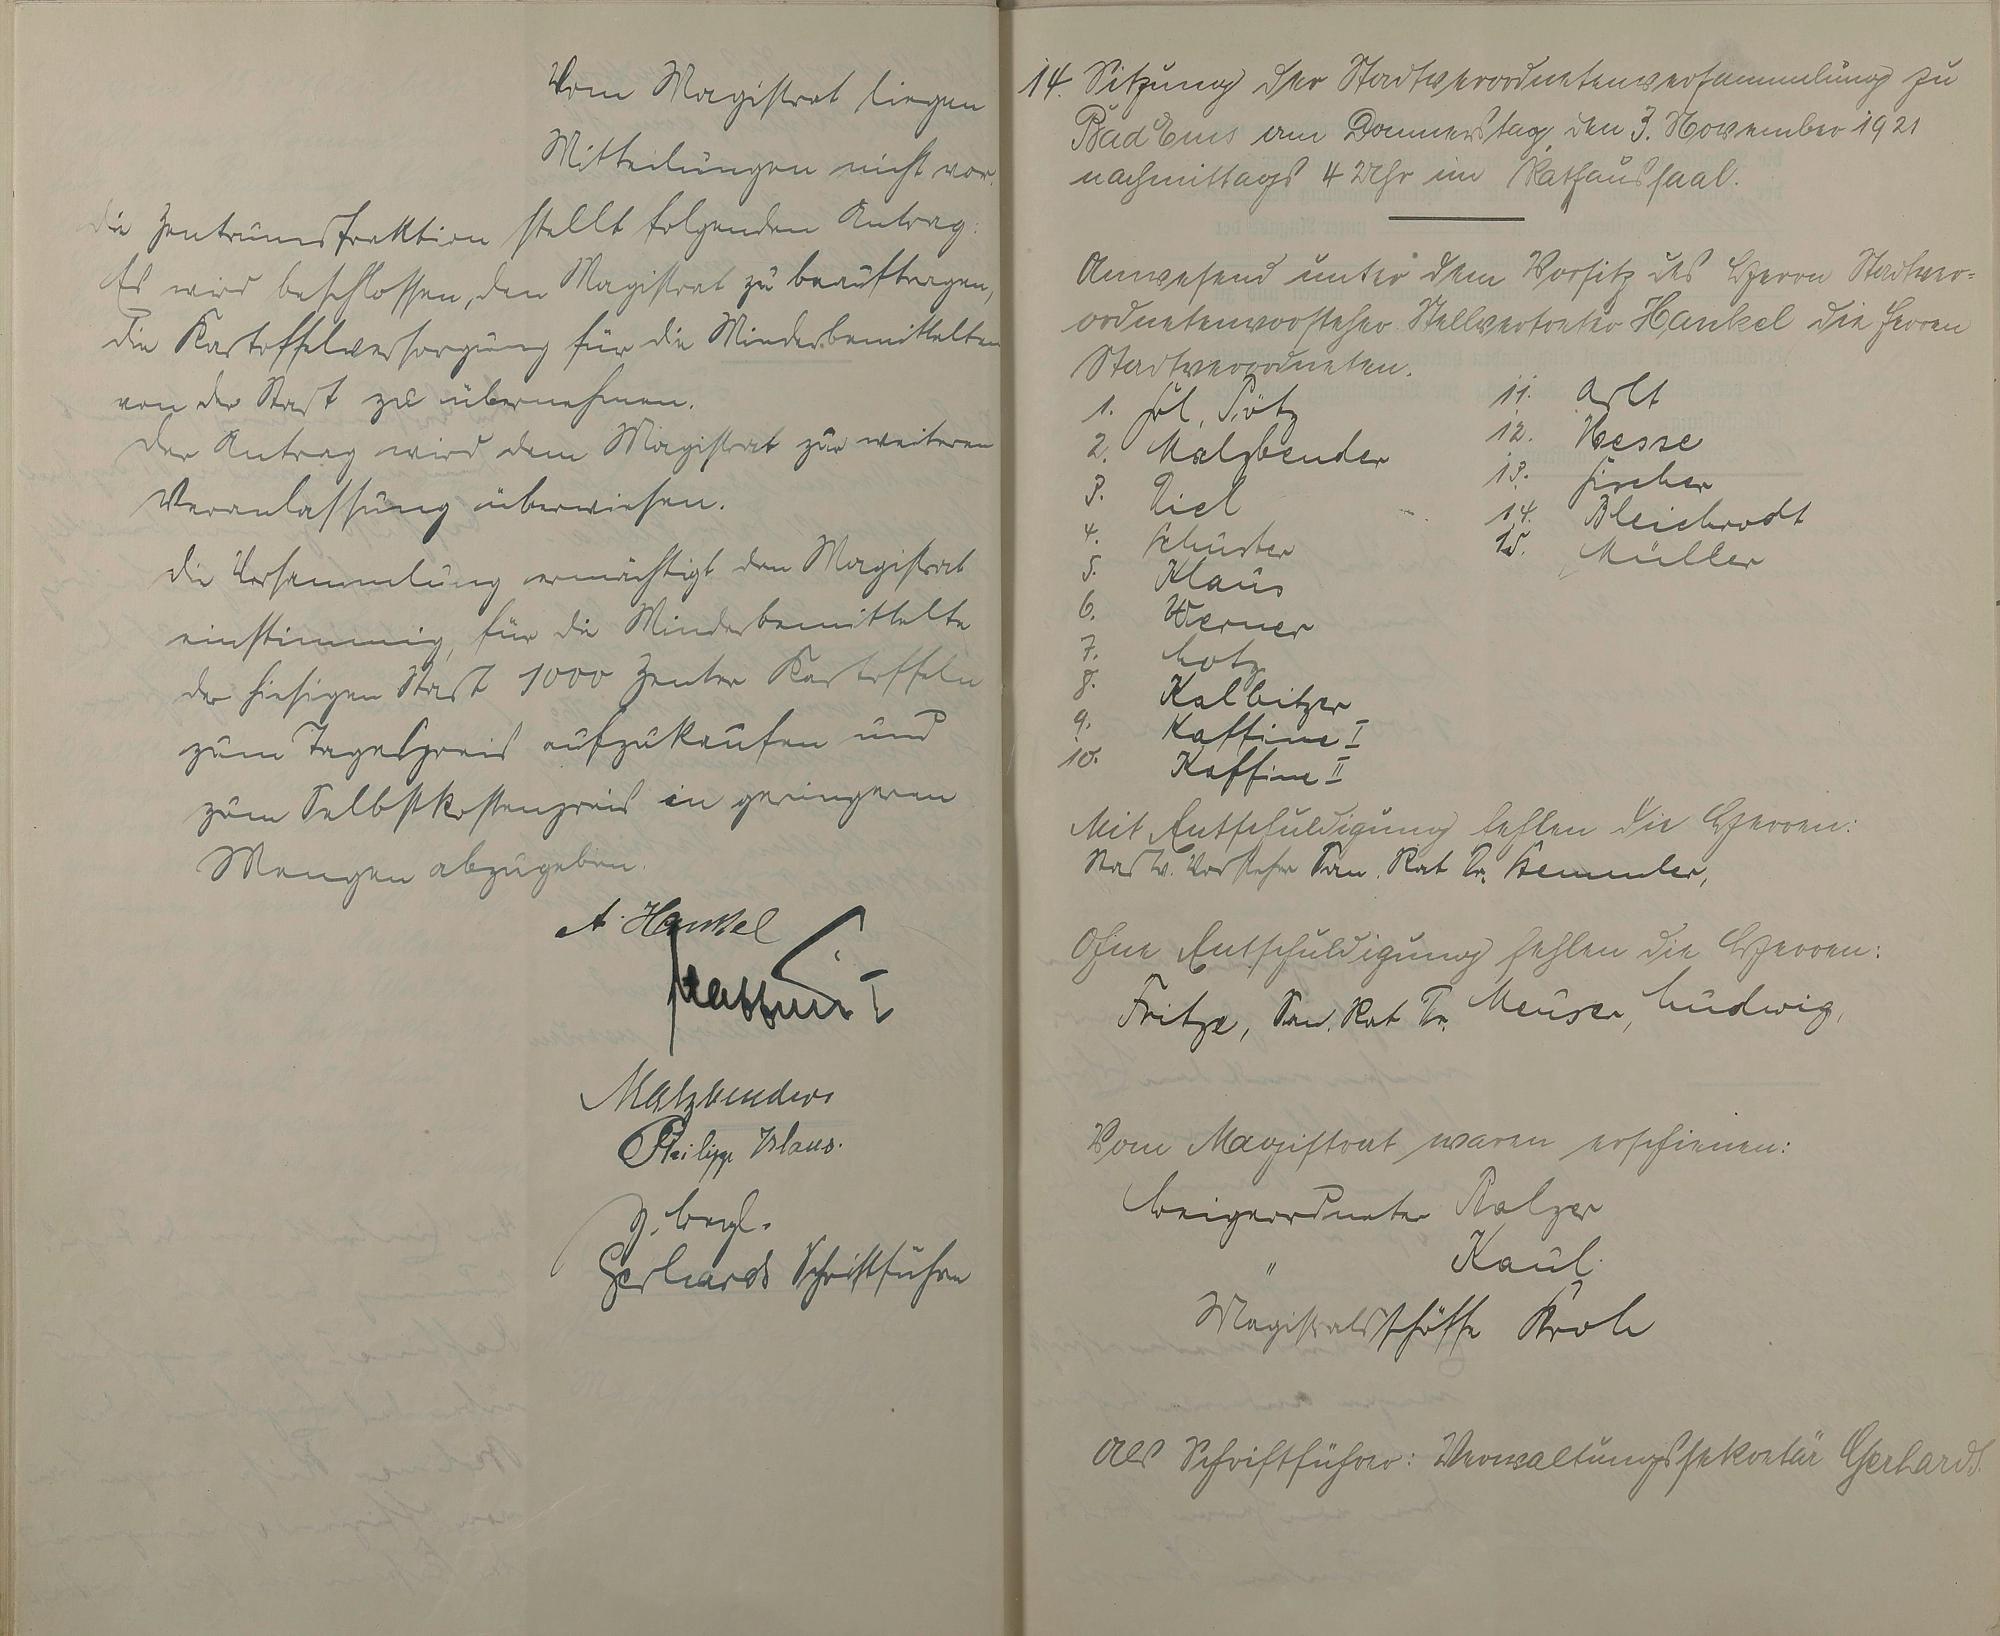 Vom Magistrat liegen
Mitteilungen nicht vor.
Die Zentrumsfraktion stellt folgenden Antrag:
Es wird beschlossen, den Magistrat zu beauftragen,
die Kartoffelversorgung für die Minderbemittelten
von der Stadt zu übernehmen.
Der Antrag wird dem Magistrat zur weiteren
Veranlassung überwiesen.
Die Versammlung ermächtigt den Magistrat
einstimmig, für die Minderbemittelte
der hiesigen Stadt 1000 Zenter Kartoffeln
zum Tagespreis aufzukaufen und
zum Selbstkostenpreis in geringeren
Mengen abzugeben.
A. Hankel
Kaffine I
Malzbender
Philipp Klaus.
Gerhards Schriftführer
14. Sitzung der Stadtverordnetenversammlung zu
Bad Ems am Donnerstag, den 3. November 1921
nachmittags 4 Uhr im Rathaussaal.
Anwesend unter dem Vorsitz des Herrn Stadtver-
ordnetenvorsteher Stellvertreter Hankel die Herren
Stadtverordneten.
1. Frl. Pötz
2. Malzbender
3. Viel
4. Schuster
5. Klaus
6. Werner
7. Lotz
8. Kalbitzer
9. Kaffine I
10. Kaffine II
11. Arlt
12. Hesse
13. Fischer
14. Bleichrodt
15. Müller
Mit Entschuldigung fehlen die Herren:
Stadtv. Vorsteher San. Rat Dr. Stemmler,
Ohne Entschuldigung fehlen die Herren:
Fritze, San. Rat Dr. Meuser, Ludwig,
Vom Magistrat waren erschienen:
Beigeordneter Balzer
" Kaul.
Magistratsschöffe Kroh
Als Schriftführer: Verwaltungssekretär Gerhards.